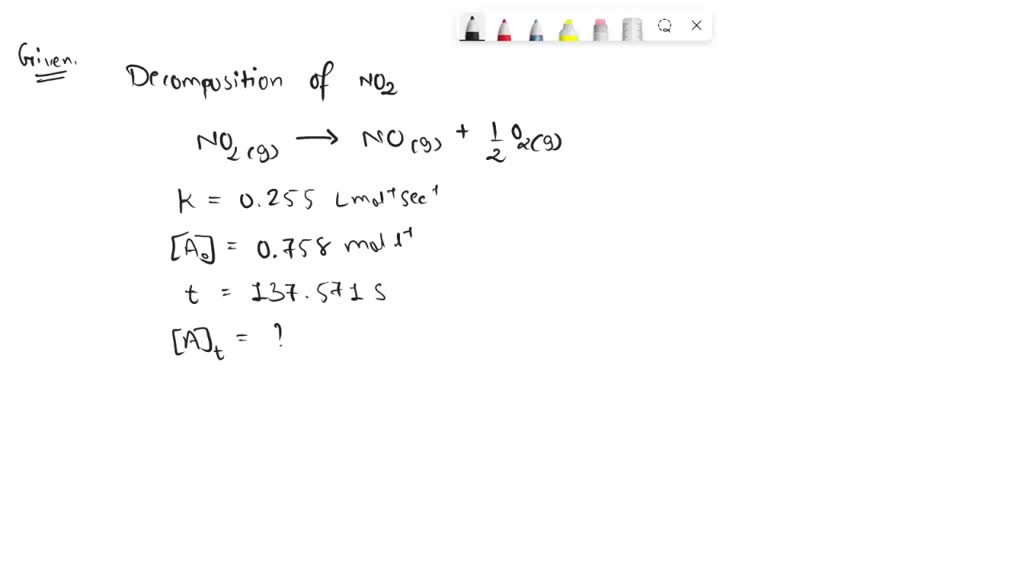 Given.
Decomposition of NO₂
NO₂(g) → NO(g) + 1/2 O₂(g)
K = 0.255 L mol⁻¹ sec⁻¹
[A₀] = 0.758 mol l⁻¹
t = 137.571 S
[A]ₜ = ?